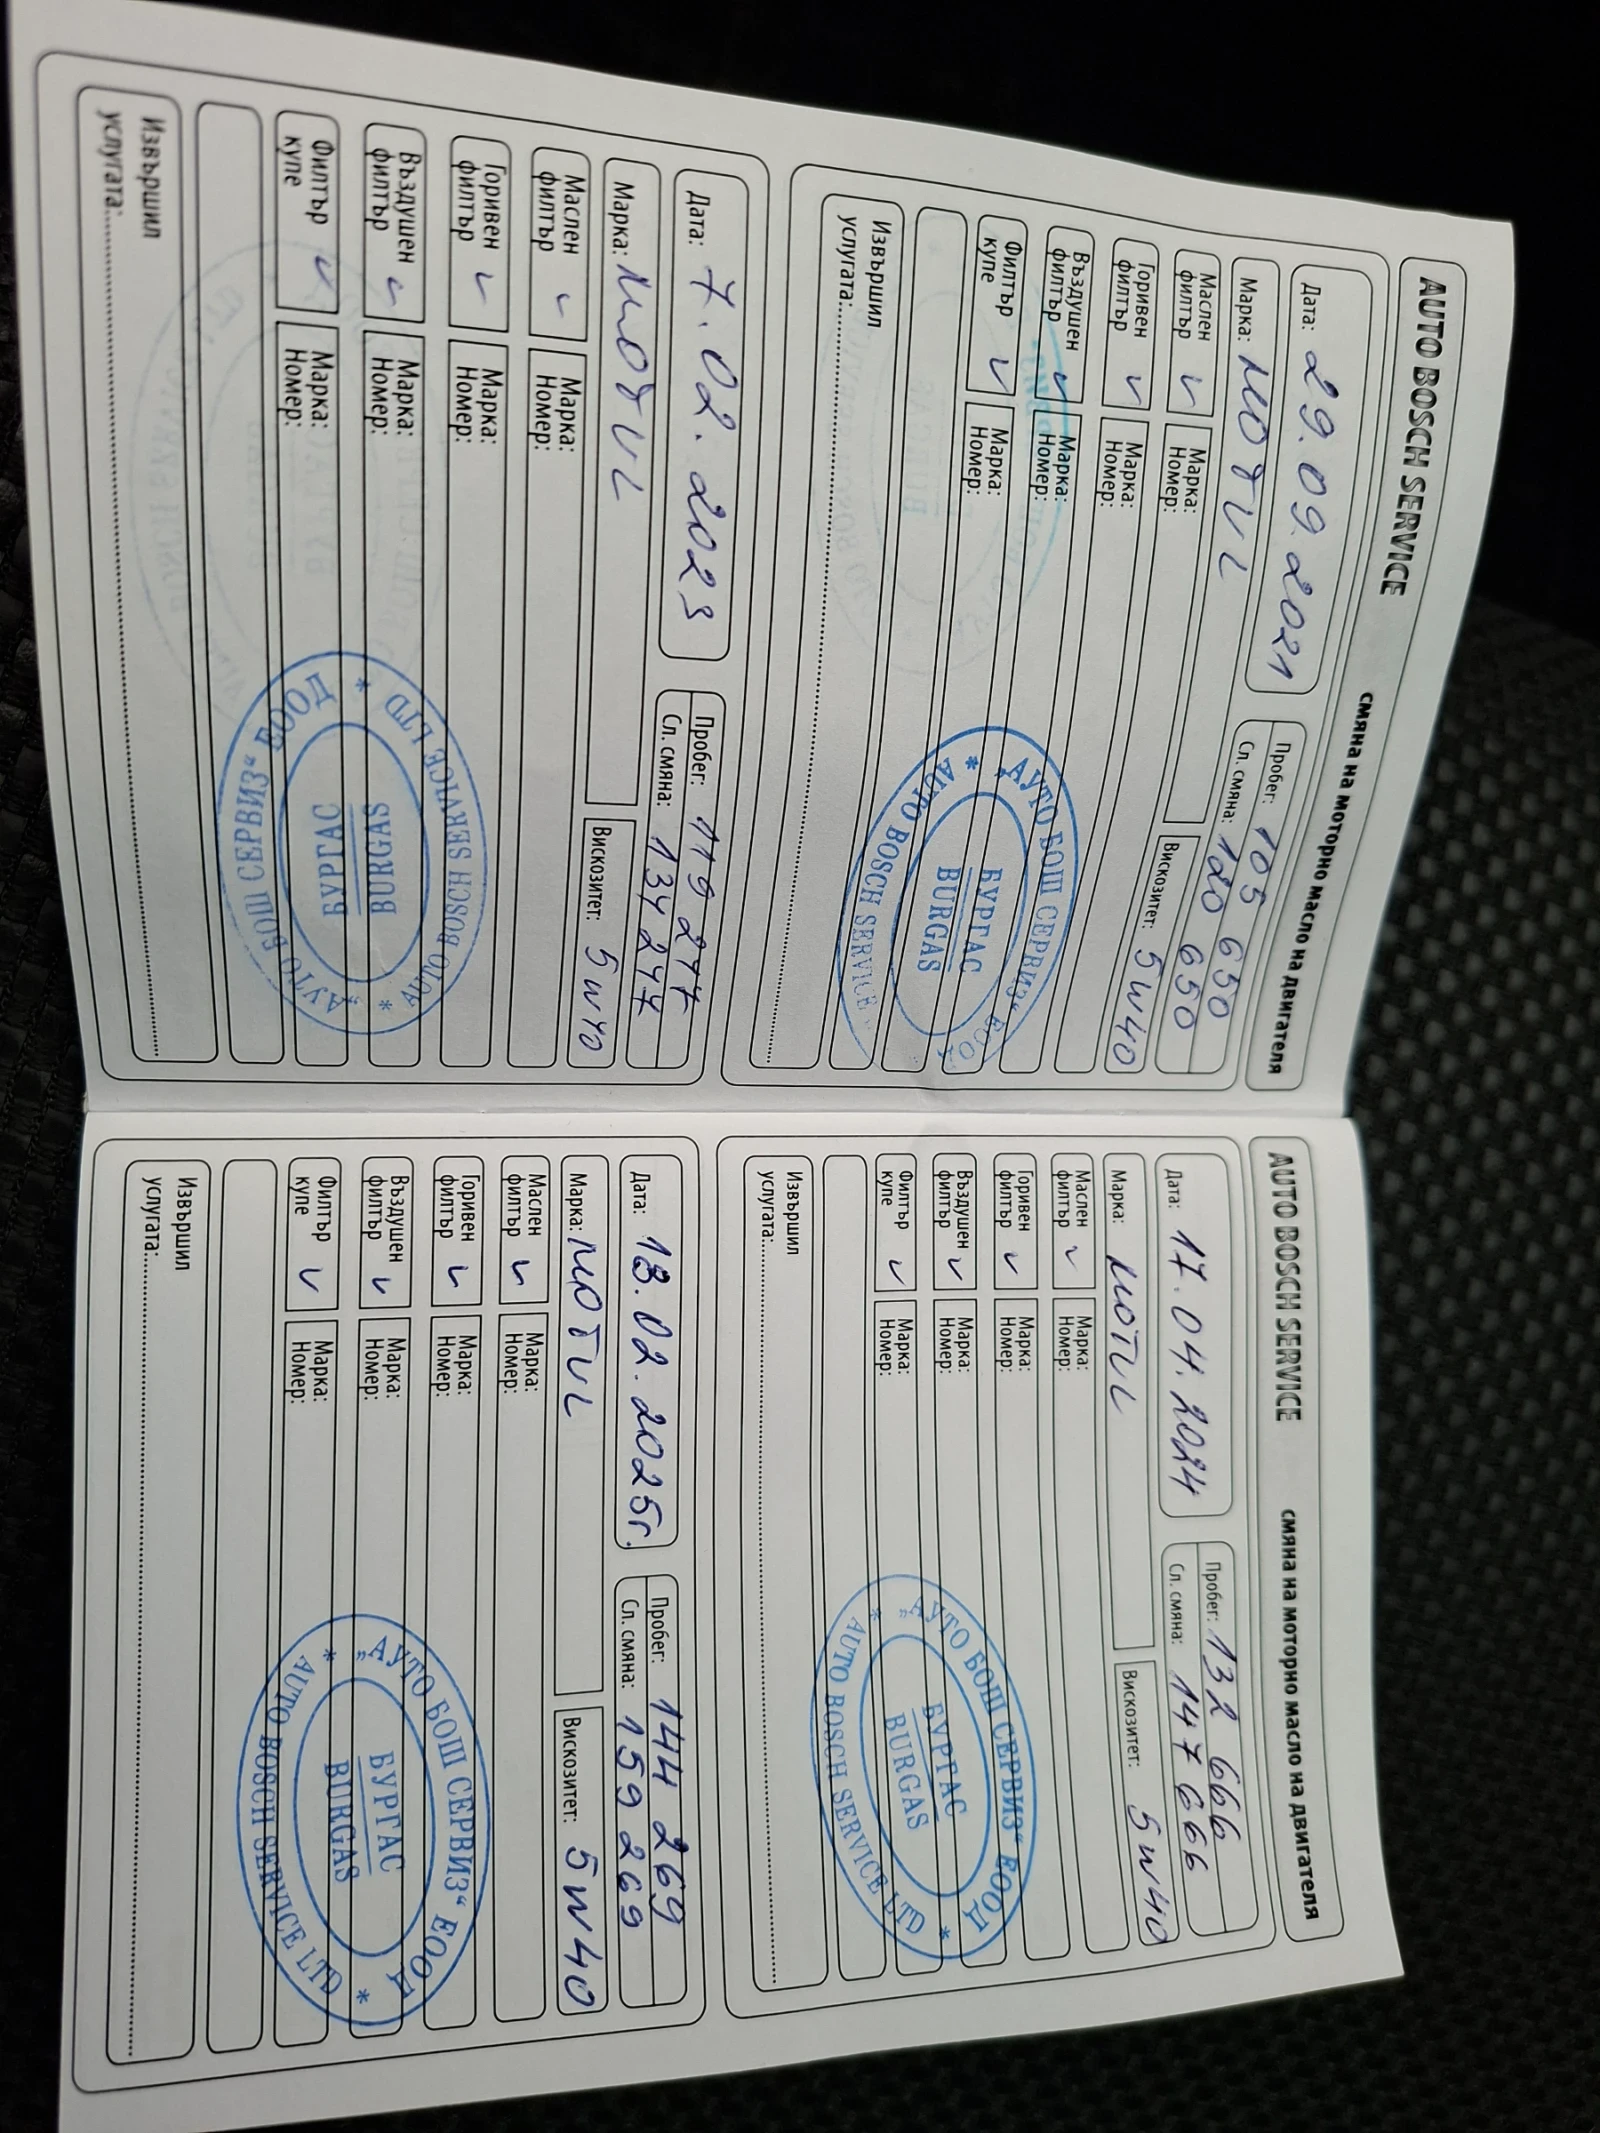 AUTO BOSCH SERVICE смяна на моторно масло на двигателя
Дата: 29.09.2021 Пробег: 105 650
Сл. смяна: 120 650
Марка: MOTUL Вискозитет: 5W40
Маслен филтър ✓ Марка: Номер:
Горивен филтър ✓ Марка: Номер:
Въздушен филтър ✓ Марка: Номер:
Филтър купе ✓ Марка: Номер:
Извършил услугата:
„АУТО БОШ СЕРВИЗ“ ЕООД
БУРГАС
BURGAS
* AUTO BOSCH SERVICE
Дата: 7.02.2023 Пробег: 119 247
Сл. смяна: 134 247
Марка: MOTUL Вискозитет: 5W40
Маслен филтър ✓ Марка: Номер:
Горивен филтър ✓ Марка: Номер:
Въздушен филтър ✓ Марка: Номер:
Филтър купе ✓ Марка: Номер:
Извършил услугата:
* AUTO BOSCH SERVICE LTD *
BURGAS
БУРГАС
„АУТО БОШ СЕРВИЗ“ ЕООД
AUTO BOSCH SERVICE смяна на моторно масло на двигателя
Дата: 17.04.2024 Пробег: 132 666
Сл. смяна: 147 666
Марка: MOTUL Вискозитет: 5W40
Маслен филтър ✓ Марка: Номер:
Горивен филтър ✓ Марка: Номер:
Въздушен филтър ✓ Марка: Номер:
Филтър купе ✓ Марка: Номер:
Извършил услугата:
„АУТО БОШ СЕРВИЗ“ ЕООД
БУРГАС
BURGAS
* AUTO BOSCH SERVICE LTD *
Дата: 18.02.2025г. Пробег: 144 269
Сл. смяна: 159 269
Марка: MOTUL Вискозитет: 5W40
Маслен филтър ✓ Марка: Номер:
Горивен филтър ✓ Марка: Номер:
Въздушен филтър ✓ Марка: Номер:
Филтър купе ✓ Марка: Номер:
Извършил услугата:
„АУТО БОШ СЕРВИЗ“ ЕООД
БУРГАС
BURGAS
* AUTO BOSCH SERVICE LTD *